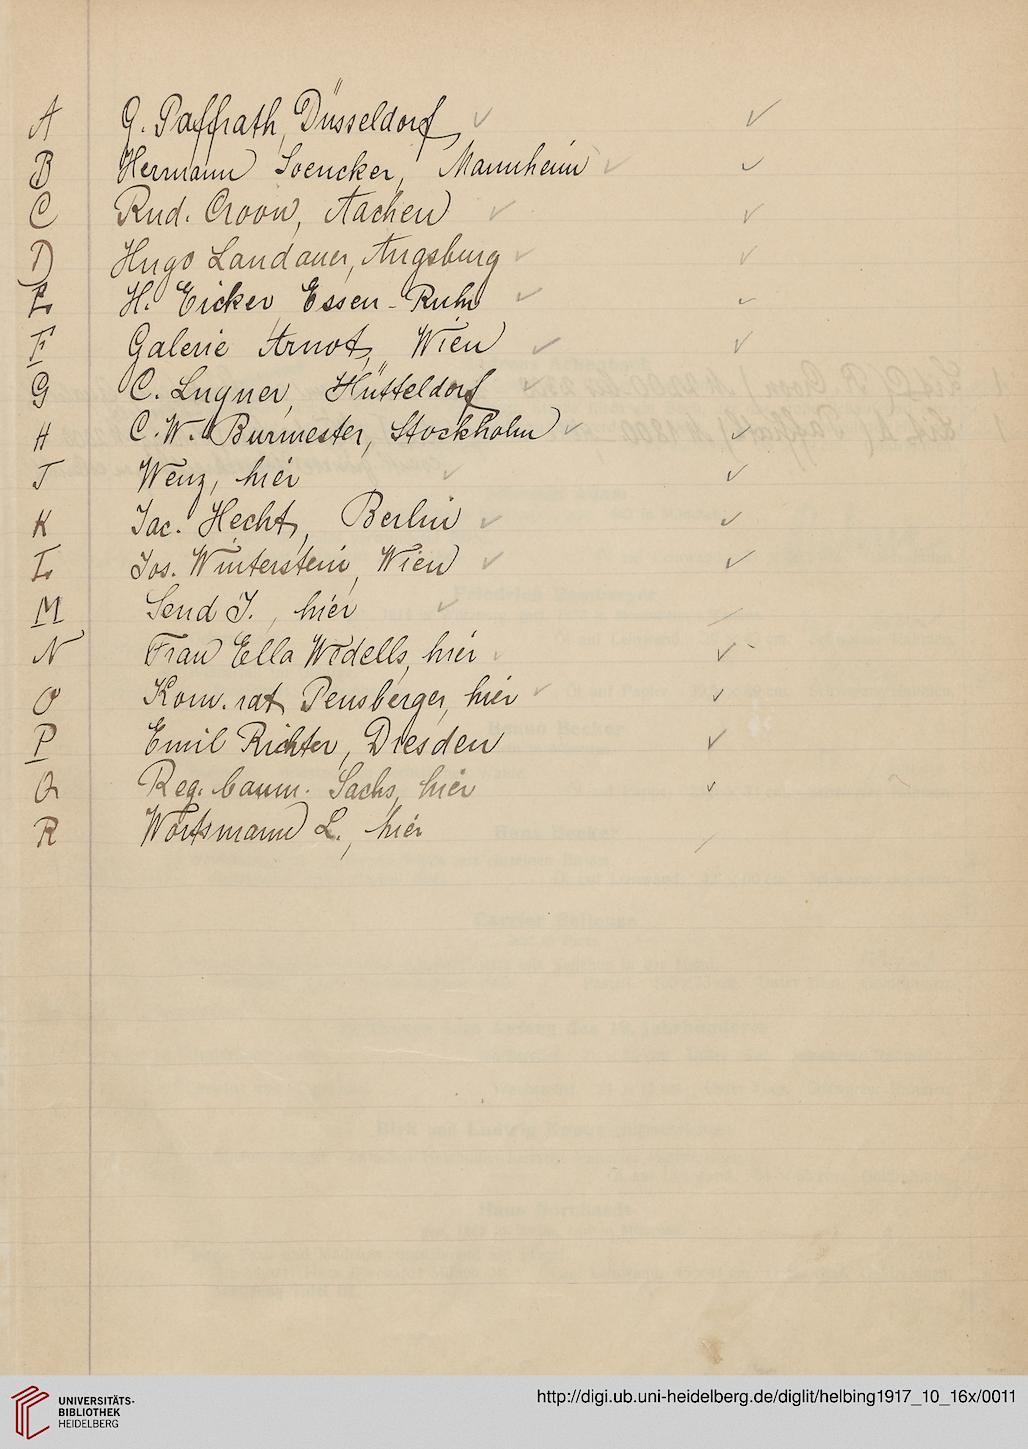 A G. Paffrath, Düsseldorf ✓ ✓
B Hermann Soencker, Mannheim ✓ ✓
C Rud. Croon, Aachen ✓ ✓
D Hugo Landauer, Augsburg ✓ ✓
E H. Eicker Essen-Ruhr ✓ ✓
F Galerie Arnot, Wien ✓ ✓
G C. Lugner, Hütteldorf ✓
H C. W. Burmester, Stockholm ✓ ✓
J Wenz, hier ✓ ✓
K Jac. Hecht, Berlin ✓ ✓
L Jos. Winterstein, Wien ✓ ✓
M Send J., hier ✓
N Frau Ella Wodells, hier ✓ ✓
O Kom. rat Pensberger, hier ✓ ✓
P Emil Richter, Dresden ✓
Q Reg. baum. Sachs, hier ✓
R Wortsmann L., hier
UNIVERSITÄTS-
BIBLIOTHEK
HEIDELBERG
http://digi.ub.uni-heidelberg.de/diglit/helbing1917_10_16x/0011